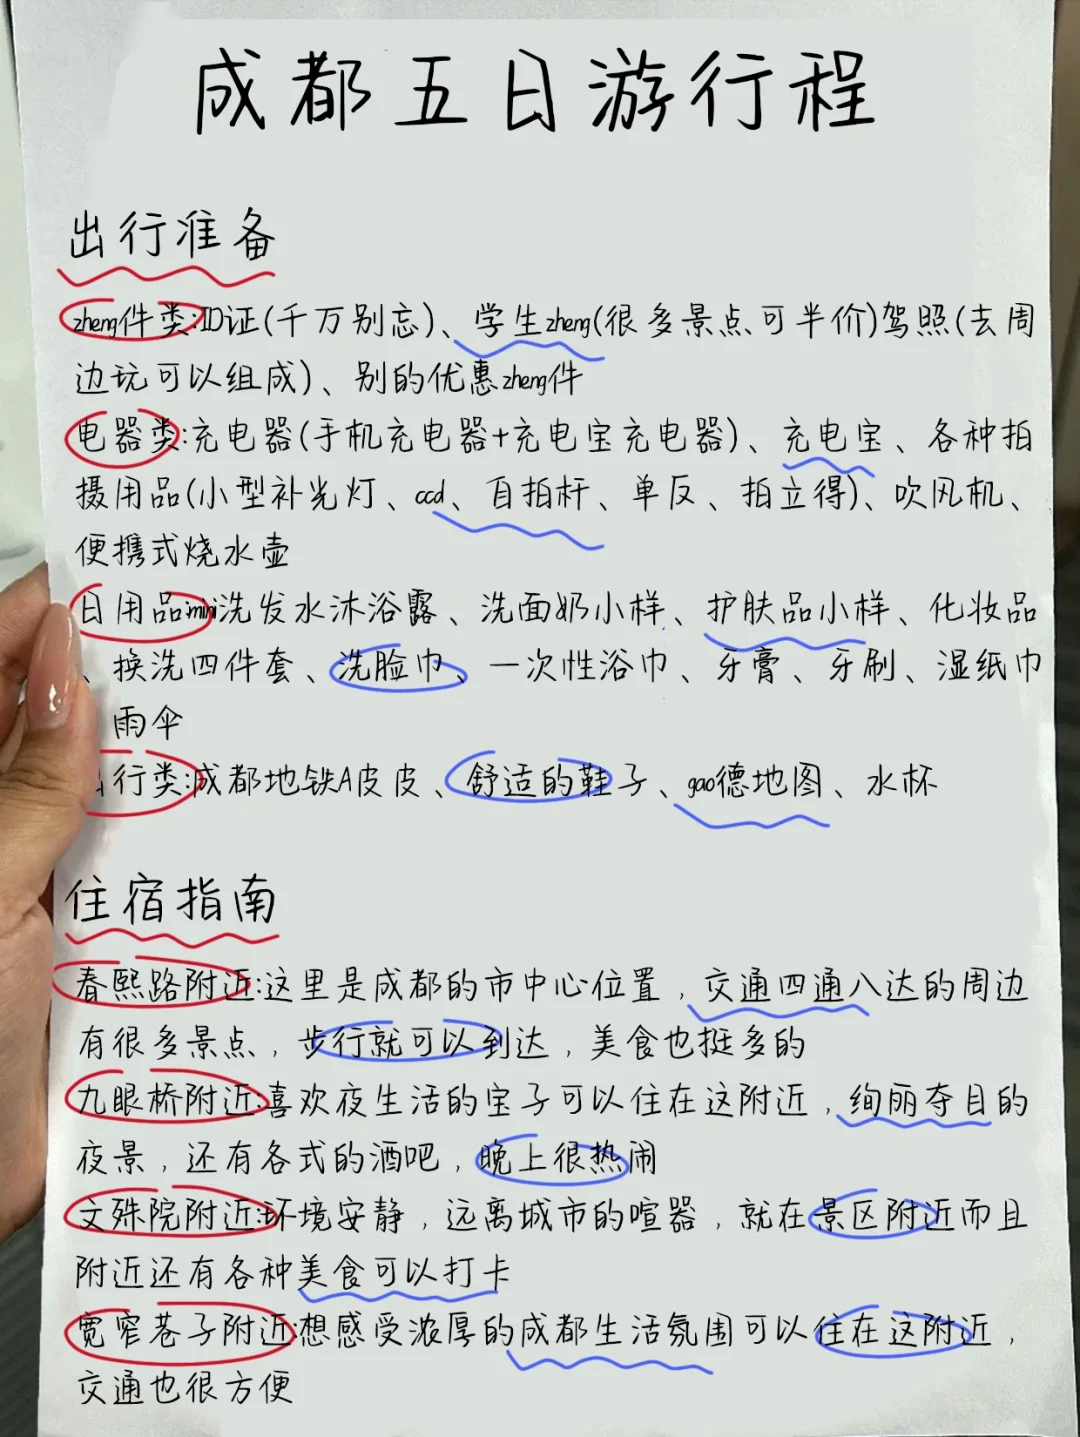 成都五日游行程
出行准备
zheng件类:ID证(千万别忘)、学生zheng(很多景点可半价)驾照(去周
边玩可以组成)、别的优惠zheng件
电器类:充电器(手机充电器+充电宝充电器)、充电宝、各种拍
摄用品(小型补光灯、ccd、自拍杆、单反、拍立得)、吹风机、
便携式烧水壶
日用品:mini洗发水沐浴露、洗面奶小样、护肤品小样、化妆品
、换洗四件套、洗脸巾、一次性浴巾、牙膏、牙刷、湿纸巾
雨伞
出行类:成都地铁A皮皮、舒适的鞋子、gao德地图、水杯
住宿指南
春熙路附近:这里是成都的市中心位置，交通四通八达的周边
有很多景点，步行就可以到达，美食也挺多的
九眼桥附近:喜欢夜生活的宝子可以住在这附近，绚丽夺目的
夜景，还有各式的酒吧，晚上很热闹
文殊院附近:环境安静，远离城市的喧器，就在景区附近而且
附近还有各种美食可以打卡
宽窄巷子附近:想感受浓厚的成都生活氛围可以住在这附近，
交通也很方便